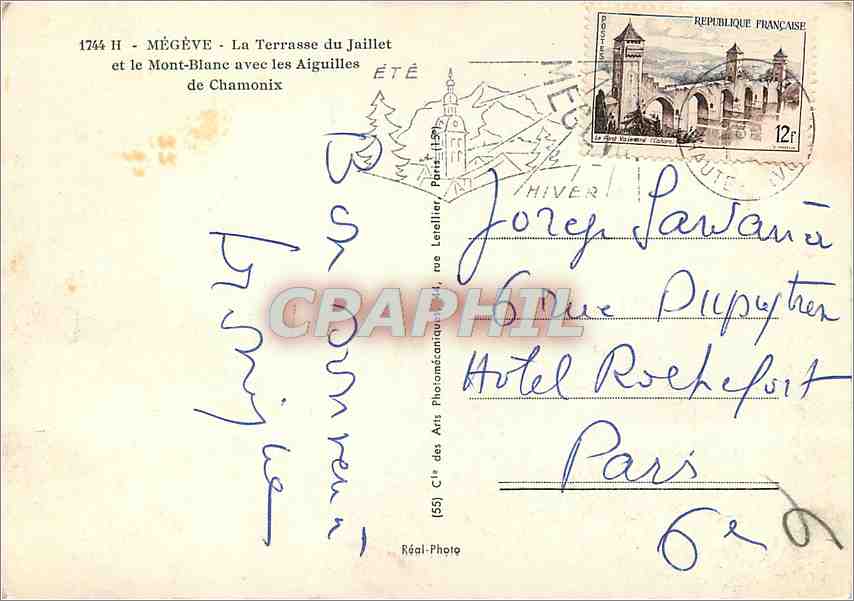 1744 H - MÉGÈVE - La Terrasse du Jaillet
et le Mont-Blanc avec les Aiguilles
de Chamonix
ÉTÉ
HIVER
POSTES
REPUBLIQUE FRANÇAISE
Le Pont Valentré (Cahors)
12f
Bon souvenir
Josep
6 rue Dupuytren
Hôtel Rochefort
Paris
6e
6
(55) Cie des Arts Photomécaniques, 44, rue Letellier, Paris (15e)
Réal-Photo
CPARPHIL